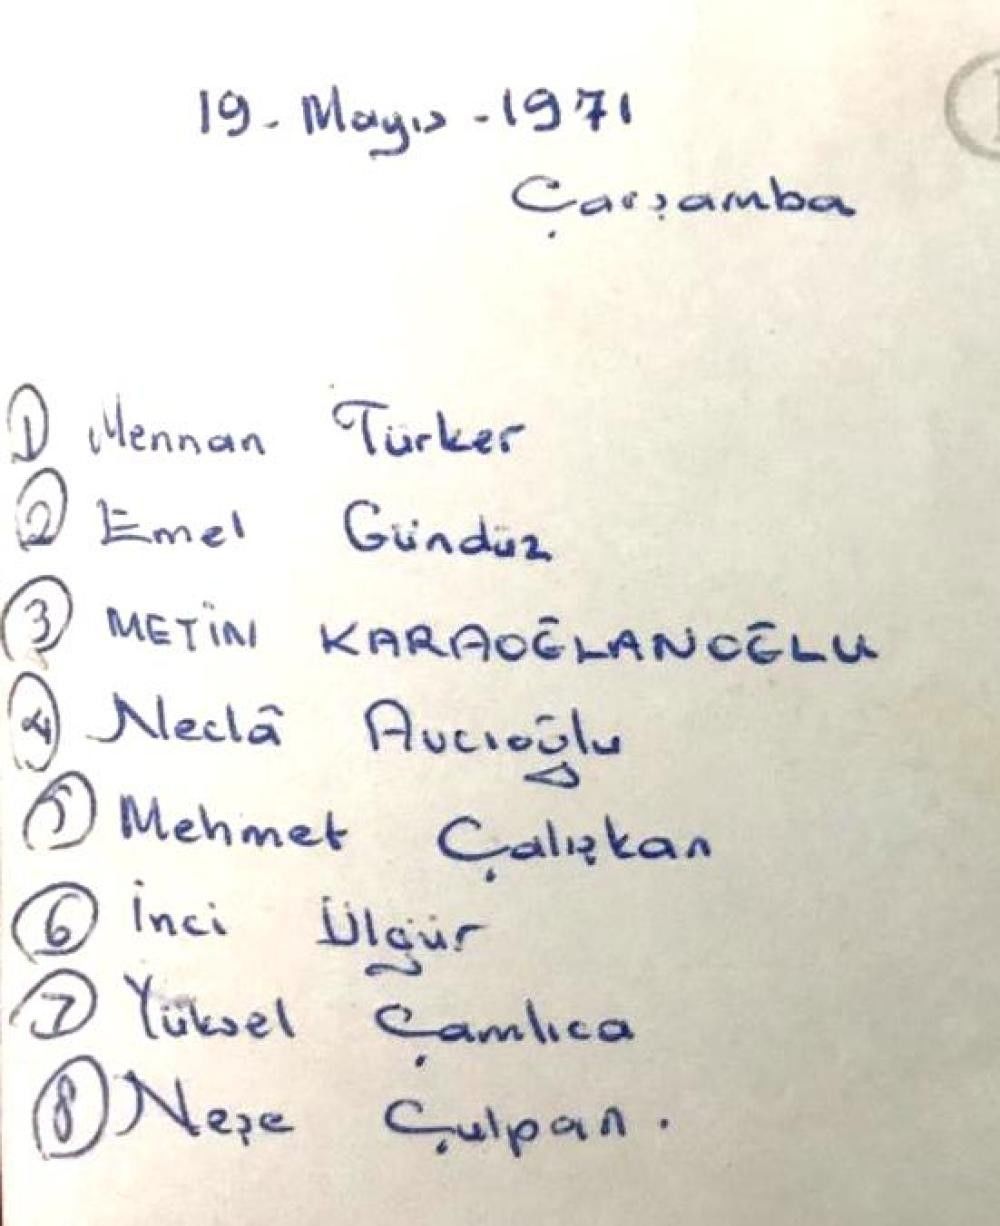 19. Mayıs - 1971
Çarşamba
1 Mennan Türker
2 Emel Gündüz
3 METİN KARAOĞLANOĞLU
4 Neclâ Avcıoğlu
5 Mehmet Çalışkan
6 İnci Ülgür
7 Yüksel Çamlıca
8 Neşe Çulpan.